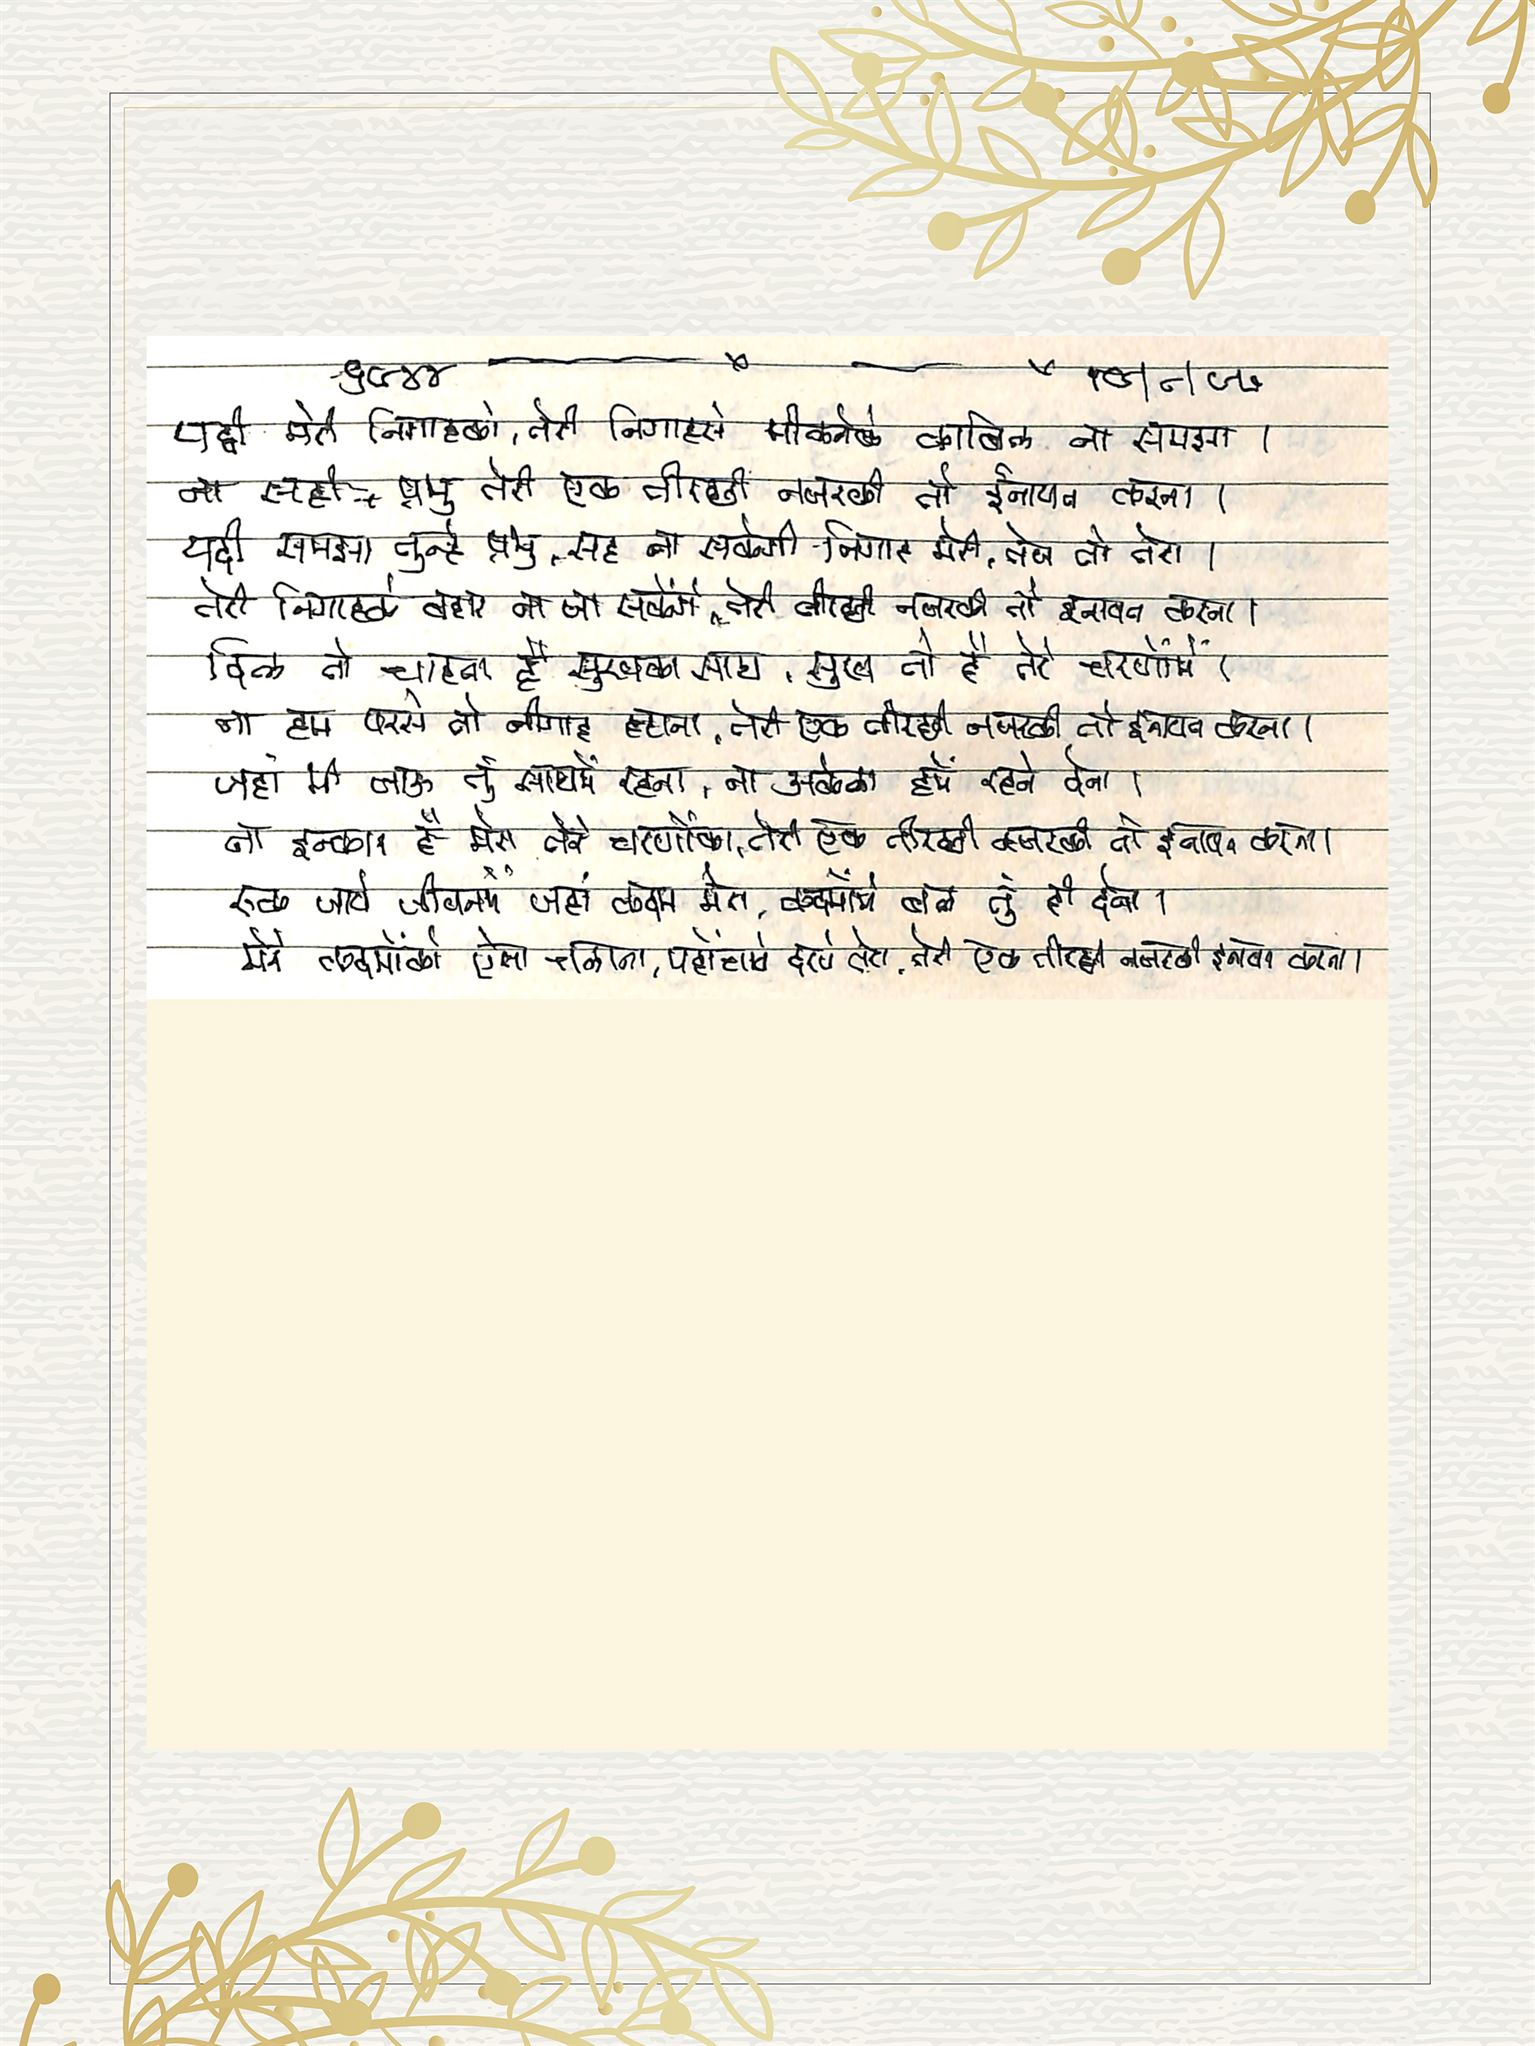 यदी मेरी निगाहको, तेरी निगाहसे मीलनेके काबिल ना समझा ।
ना सही प्रभु तेरी एक तीरछी नजरकी तो ईनायत करना ।
यदी समझा तुने प्रभु, सह ना सकेगी निगाह मेरी, तेज तो तेरा ।
तेरी निगाहके बहार ना जा सकेंगे, तेरी तीरछी नजरकी तो इनायत करना ।
दिल तो चाहता है सुखका साथ, सुख तो है तेरे चरणोंमें ।
ना हम परसे तो नीगाह हटाना, तेरी एक तीरछी नजरकी तो इनायत करना ।
जहां भी जाऊ तुं साथमें रहना, ना अकेला हमें रहने देना ।
ना इन्कार है मेरा तेरे चरणोंका, तेरी एक तीरछी नजरकी तो इनायत करना ।
रुक जाये जीवनमें जहां कदम मेरा, कदमोंमें बल तुं ही देना ।
मेरे कदमोंको ऐसा चलाना, पहोंचाये दरपे तेरा, तेरी एक तीरछी नजरकी इनायत करना ।